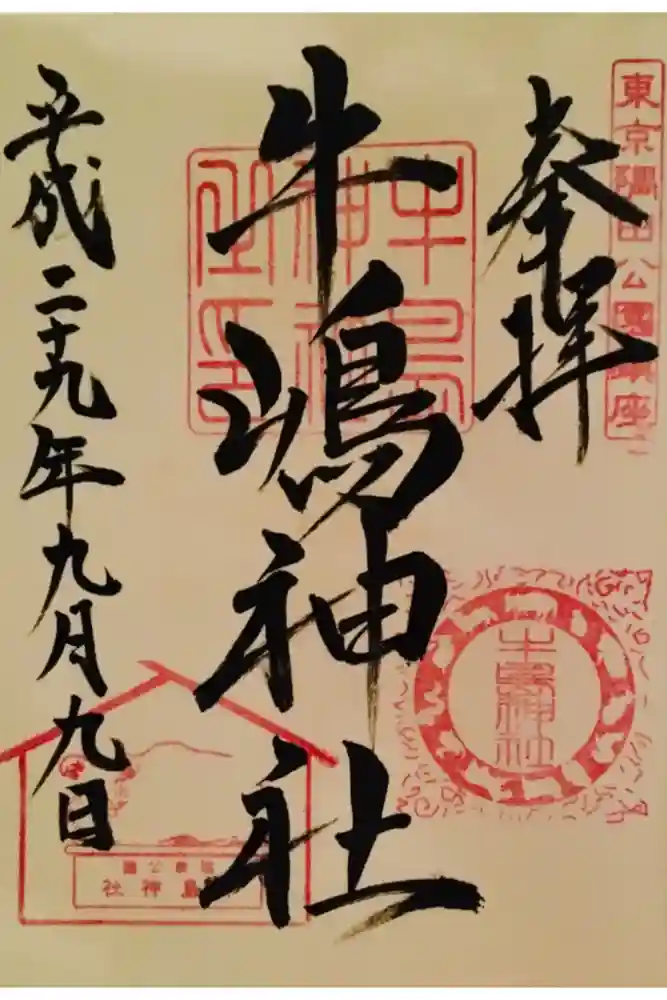 東京隅田公園鎮座
奉拝
牛嶋神社
牛島
神社
之印
牛島神社
平成二十九年九月九日
隅田公園
牛島神社